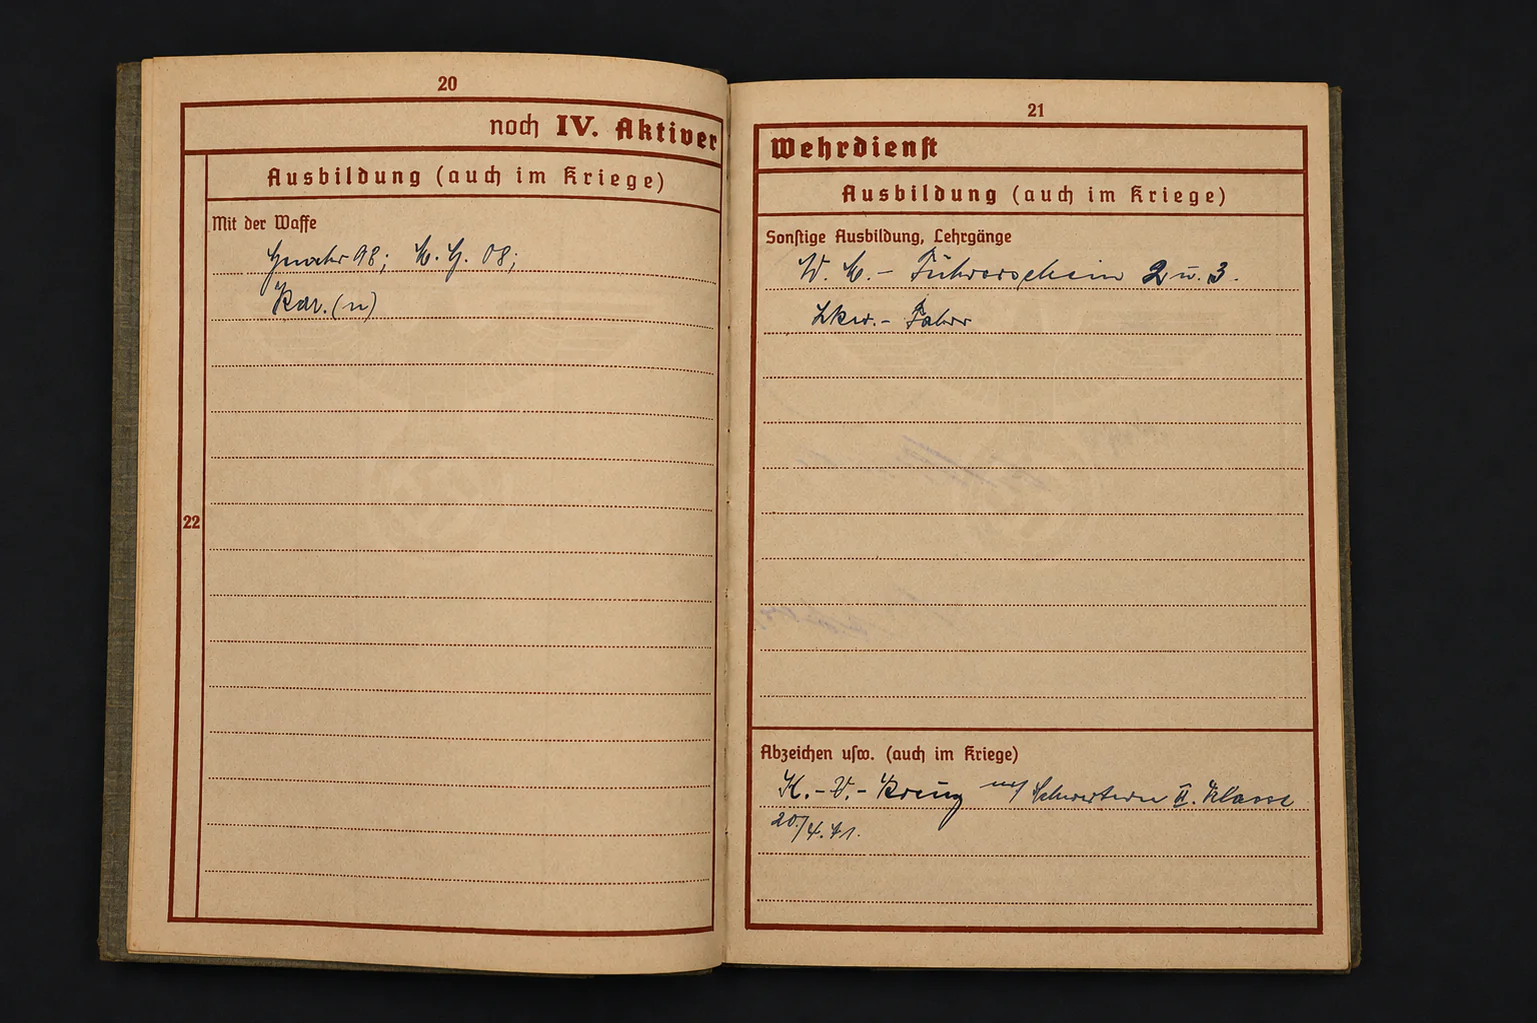 20
noch IV. Aktiver
Ausbildung (auch im Kriege)
Mit der Waffe
Gewehr 98; M. G. 08;
Kar. (n)
22
21
Wehrdienst
Ausbildung (auch im Kriege)
Sonstige Ausbildung, Lehrgänge
W. M. - Führerschein 2 u. 3.
Lkw. - Fahrer
Abzeichen usw. (auch im Kriege)
K. - V. - Kreuz mit Schwertern II. Klasse
20/4. 41.